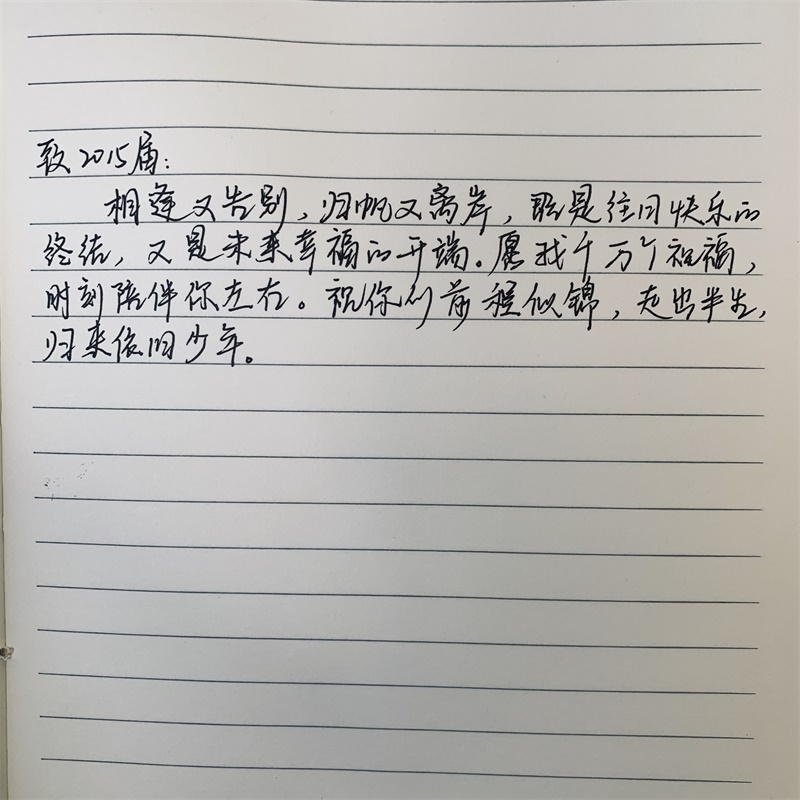 致2015届：
相逢又告别，归帆又离岸，既是往日快乐的
终结，又是未来幸福的开端。愿我千万个祝福，
时刻陪伴你左右。祝你们前程似锦，走出半生，
归来依旧少年。